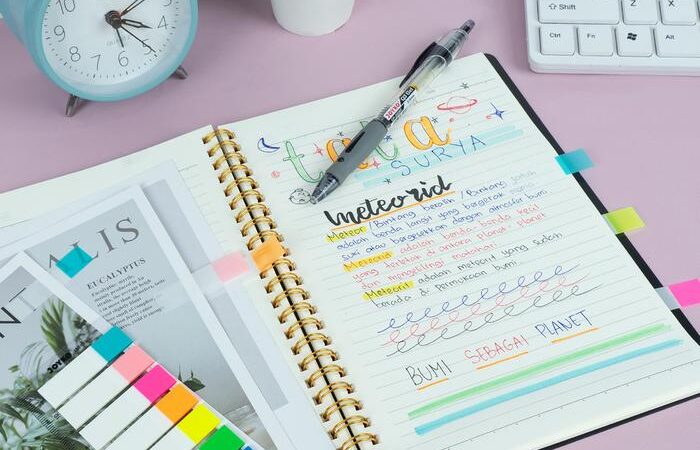 Shift
Z
X
C
Ctrl
Fn
Alt
9
8
7
6
5
4
3
JOYKO
tata
SURYA
Meteorid
Meteor/Bintang beralih/Bintang jatuh
adalah benda langit yang bergerak
atau bergesekan dengan atmosfa bumi
adalah benda benda kecil
yang terletak di antara planet planet
dan mengelilingi matahari
Meteorit adalah meteorid yang sudah
berada di permukaan bumi
BUMI SEBAGAI PLANET
ALIS
EUCALYPTUS
NT
JOYKO